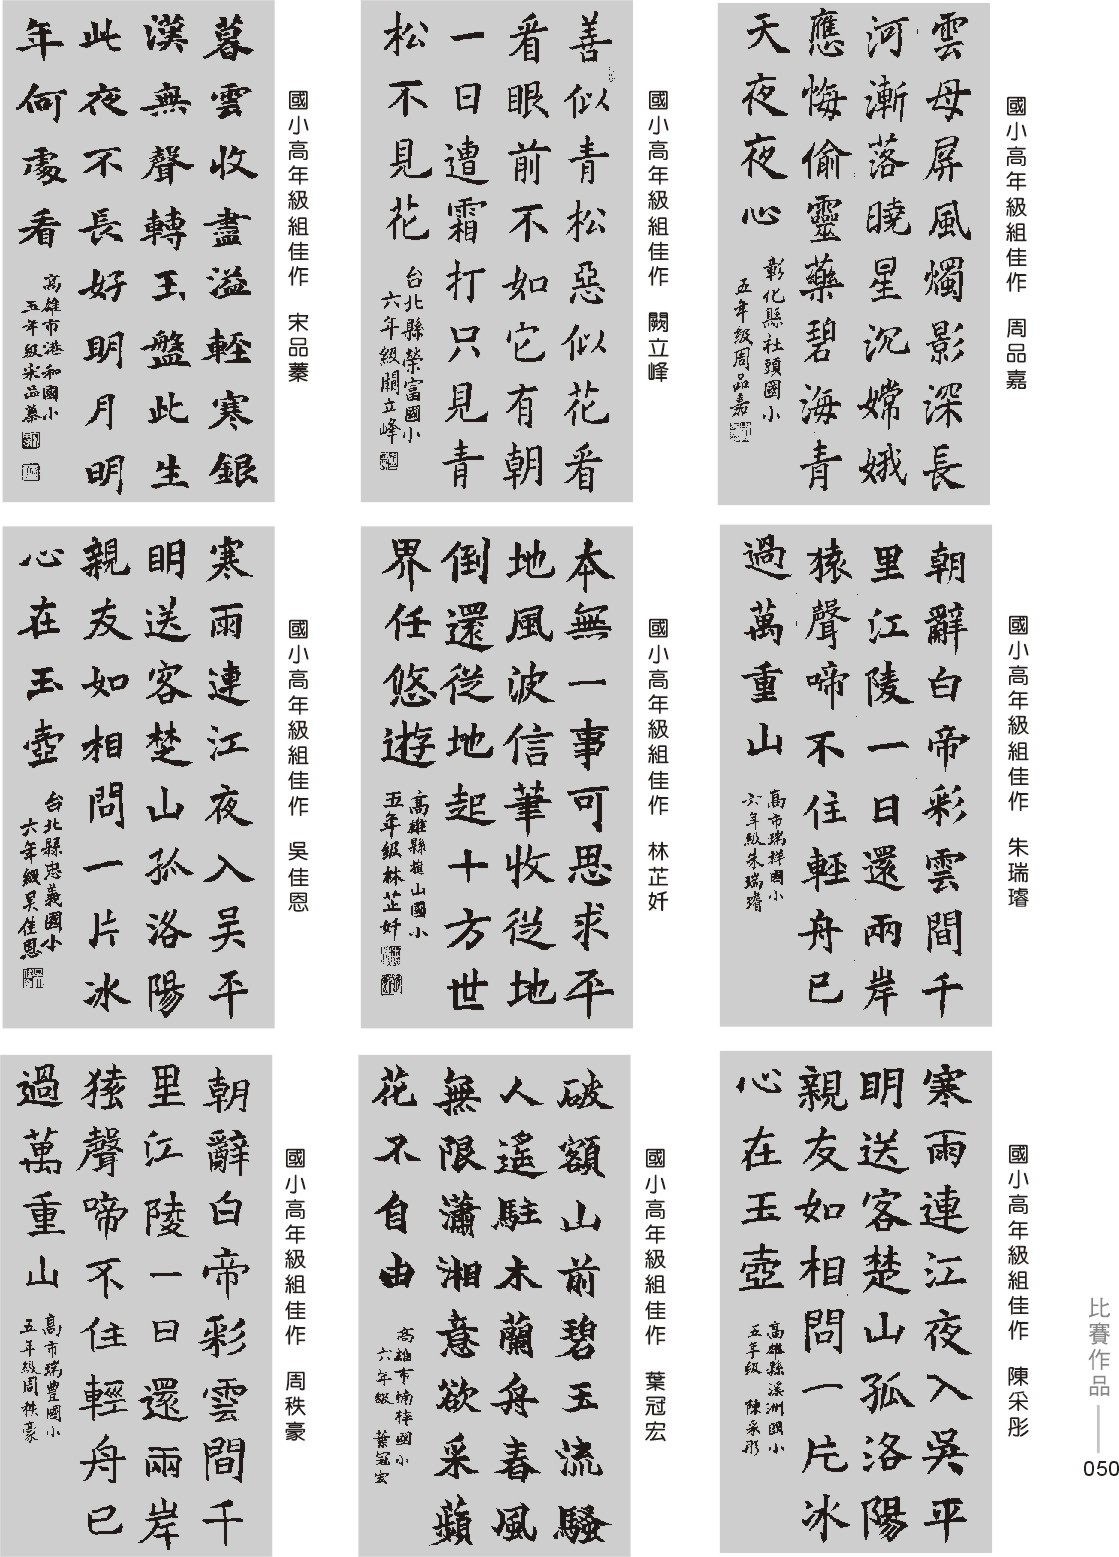 雲母屏風燭影深長
河漸落曉星沉嫦娥
應悔偷靈藥碧海青
天夜夜心
彰化縣社頭國小
五年級周品嘉
國小高年級組佳作　周品嘉
善似青松惡似花看
看眼前不如它有朝
一日遭霜打只見青
松不見花
台北縣榮富國小
六年級闕立峰
國小高年級組佳作　闕立峰
暮雲收盡溢輕寒銀
漢無聲轉玉盤此生
此夜不長好明月明
年何處看
高雄市港和國小
五年級宋品蓁
國小高年級組佳作　宋品蓁
朝辭白帝彩雲間千
里江陵一日還兩岸
猿聲啼不住輕舟已
過萬重山
高市瑞祥國小
六年級朱瑞璿
國小高年級組佳作　朱瑞璿
本無一事可思求平
地風波信筆收從地
倒還從地起十方世
界任悠遊
高雄縣旗山國小
五年級林芷奷
國小高年級組佳作　林芷奷
寒雨連江夜入吳平
明送客楚山孤洛陽
親友如相問一片冰
心在玉壺
台北縣忠義國小
六年級吳佳恩
國小高年級組佳作　吳佳恩
寒雨連江夜入吳平
明送客楚山孤洛陽
親友如相問一片冰
心在玉壺
高雄縣溪洲國小
五年級　陳采彤
國小高年級組佳作　陳采彤
破額山前碧玉流騷
人遙駐木蘭舟春風
無限瀟湘意欲采蘋
花不自由
高雄市楠梓國小
六年級　葉冠宏
國小高年級組佳作　葉冠宏
朝辭白帝彩雲間千
里江陵一日還兩岸
猿聲啼不住輕舟已
過萬重山
高市瑞豐國小
五年級周秩豪
國小高年級組佳作　周秩豪
比賽作品
050